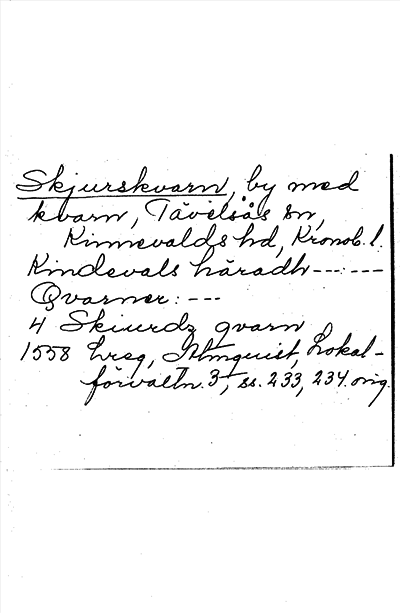 Skjurskvarn, by med
kvarn, Tävelsås sn,
Kinnevalds hd, Kronob. l.
Kindevals häradh ------
Qvarner: ---
4 Skiurdz qvarn
1558 hreg, Almquist, Lokal-
förvaltn. 3, ss. 233, 234. orig.